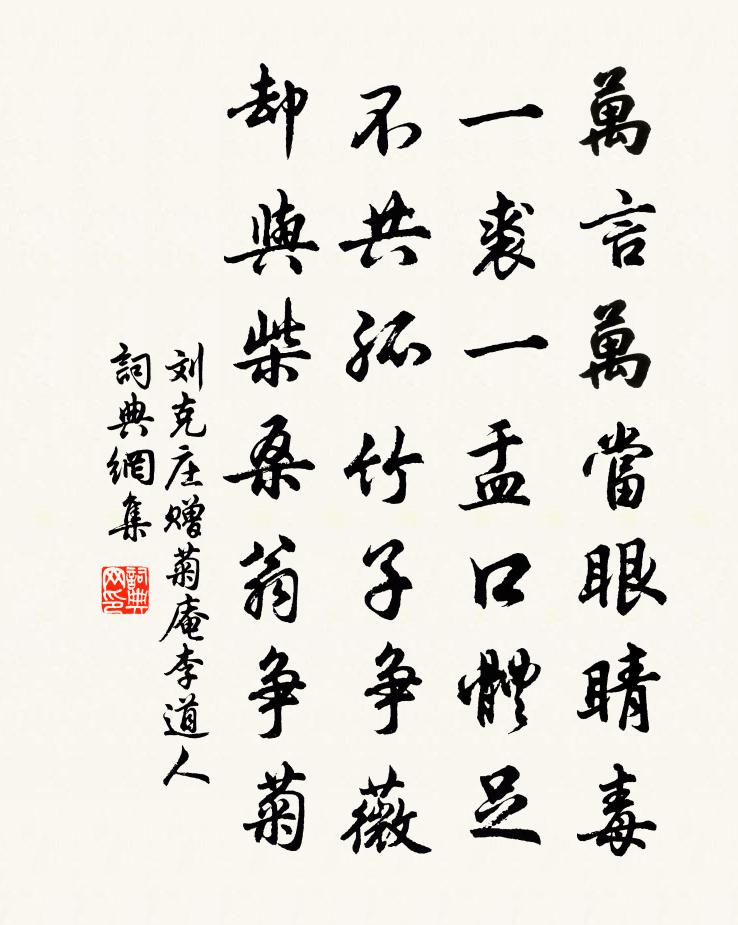 萬言萬當眼睛毒
一裘一盂口體足
不共孤竹子争薇
却與柴桑翁争菊
刘克庄赠菊庵李道人
詞典網集
詞典
网印